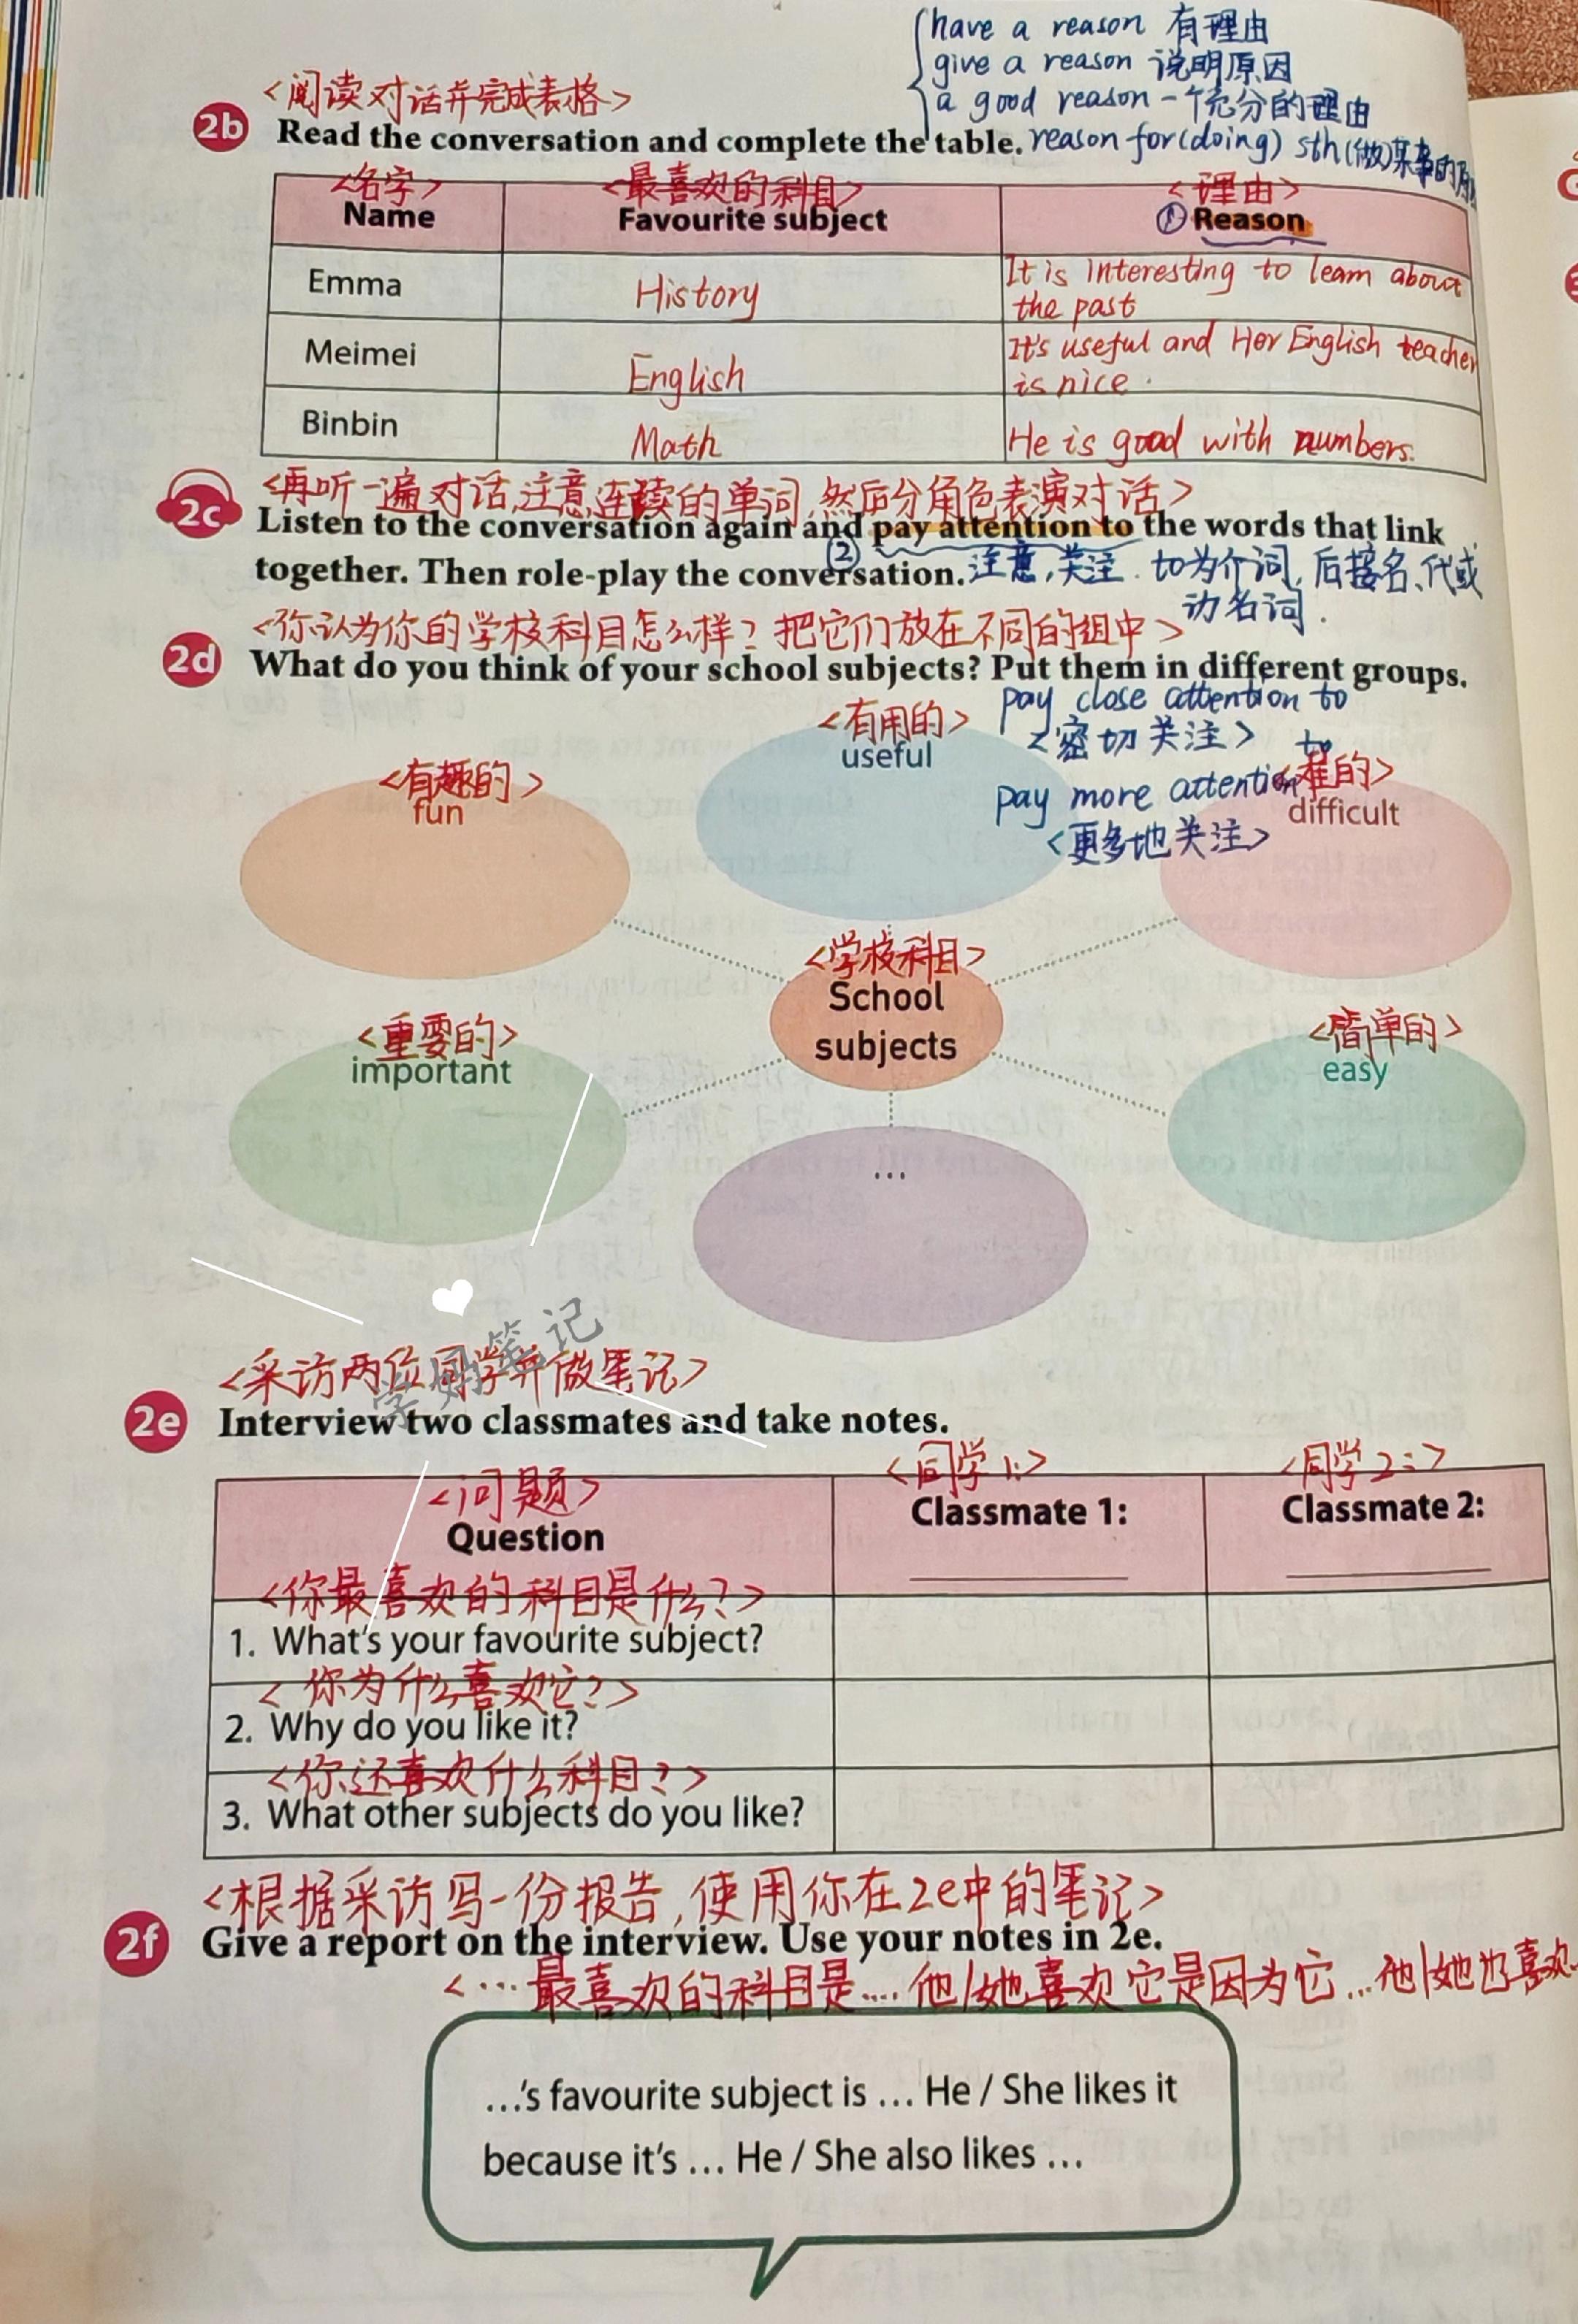 have a reason 有理由
give a reason 说明原因
a good reason 一个充分的理由
<阅读对话并完成表格>
2b Read the conversation and complete the table. reason for(doing) sth(做)某事的
<名字> <最喜欢的科目> <理由>
Name Favourite subject ① Reason
Emma History It is interesting to learn about
the past
Meimei English It's useful and Her English teacher
is nice.
Binbin Math He is good with numbers.
<再听一遍对话,注意连读的单词,然后分角色表演对话>
2c Listen to the conversation again and pay attention to the words that link
together. Then role-play the conversation. ② 注意,关注. to为介词,后接名、代或
动名词.
<你认为你的学校科目怎么样?把它们放在不同的组中>
2d What do you think of your school subjects? Put them in different groups.
pay close attention to
<密切关注>
pay more attention to
<更多地关注>
<有用的>
useful
<有趣的>
fun
<难的>
difficult
<学校科目>
School
subjects
<重要的>
important
<简单的>
easy
...
学姐笔记
<采访两位同学并做笔记>
2e Interview two classmates and take notes.
<问题> <同学1:> <同学2:>
Question Classmate 1: Classmate 2:
<你最喜欢的科目是什么?>
1. What's your favourite subject?
<你为什么喜欢它?>
2. Why do you like it?
<你还喜欢什么科目?>
3. What other subjects do you like?
<根据采访写一份报告,使用你在2e中的笔记>
2f Give a report on the interview. Use your notes in 2e.
<...最喜欢的科目是....他/她喜欢它是因为它...他/她也喜欢
...'s favourite subject is ... He / She likes it
because it's ... He / She also likes ...